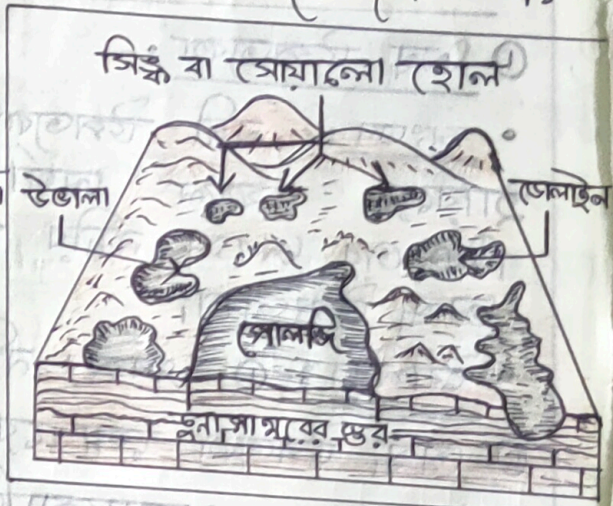 সিঙ্ক বা সোয়ালো হোল
উভালা
ডোলাইন
পোলজি
চুনাপাথরের স্তর